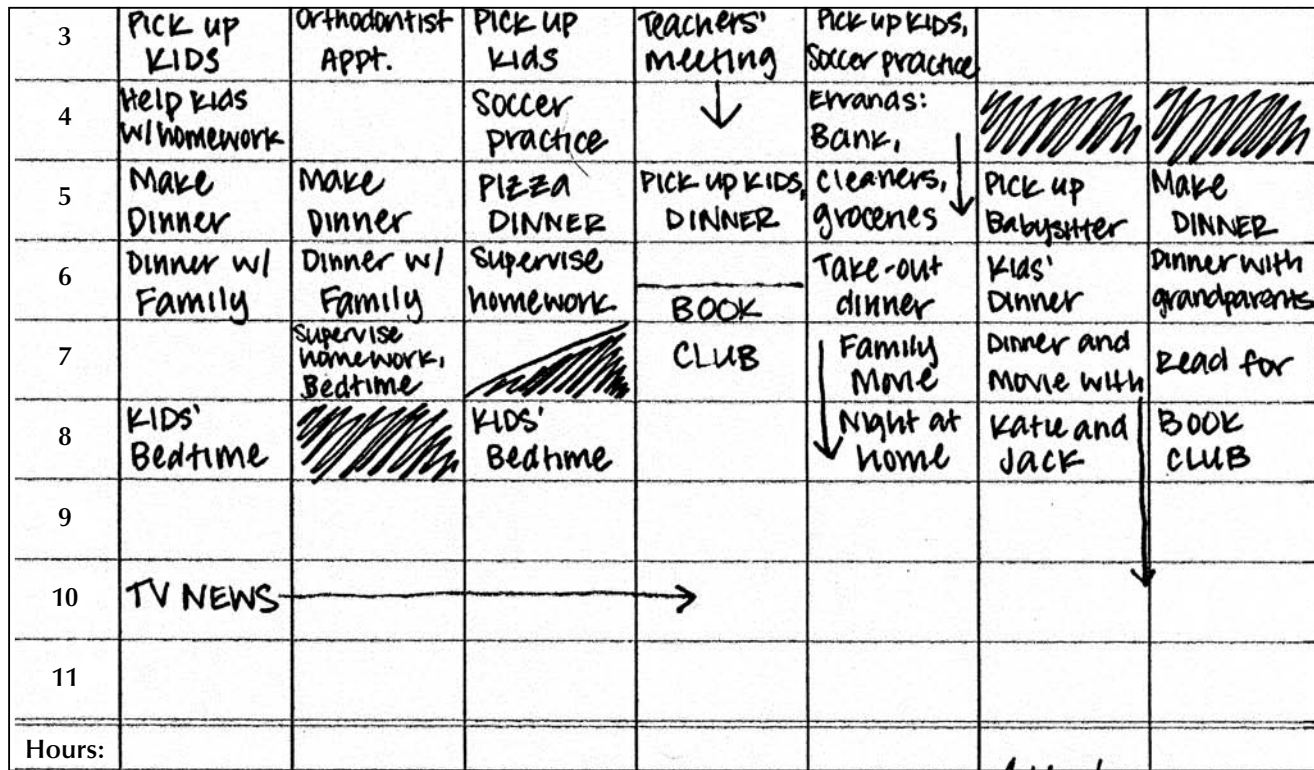 3
PICK up
KIDS
Orthodontist
APPT.
PICK up
kids
Teachers'
meeting
Pick up KIDS,
Soccer practice
4
Help kids
w/ homework
Soccer
practice
Errands:
Bank,
5
Make
Dinner
Make
Dinner
PIZZA
DINNER
PICK UP KIDS,
DINNER
cleaners,
groceries
PICK up
Babysitter
Make
DINNER
6
Dinner w/
Family
Dinner w/
Family
Supervise
homework
BOOK
Take-out
dinner
Kids'
Dinner
Dinner with
grandparents
7
Supervise
homework,
Bedtime
CLUB
Family
Movie
Dinner and
Movie with
Read for
8
KIDS'
Bedtime
KIDS'
Bedtime
Night at
home
Katie and
JACK
BOOK
CLUB
9
10
TV NEWS
11
Hours: